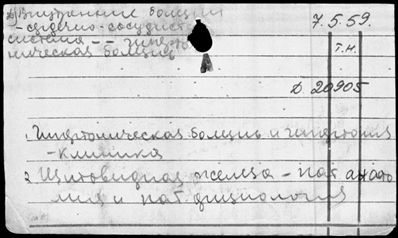 а) Внутренние болезни
7.5.59.
- сердечно-сосудист.
система -- гиперто-
т.н.
ническая болезнь
Д 20905
1. Гипертоническая болезнь и гипертония
- клиника
2. Щитовидная железа - пат. анато-
мия и пат. физиология